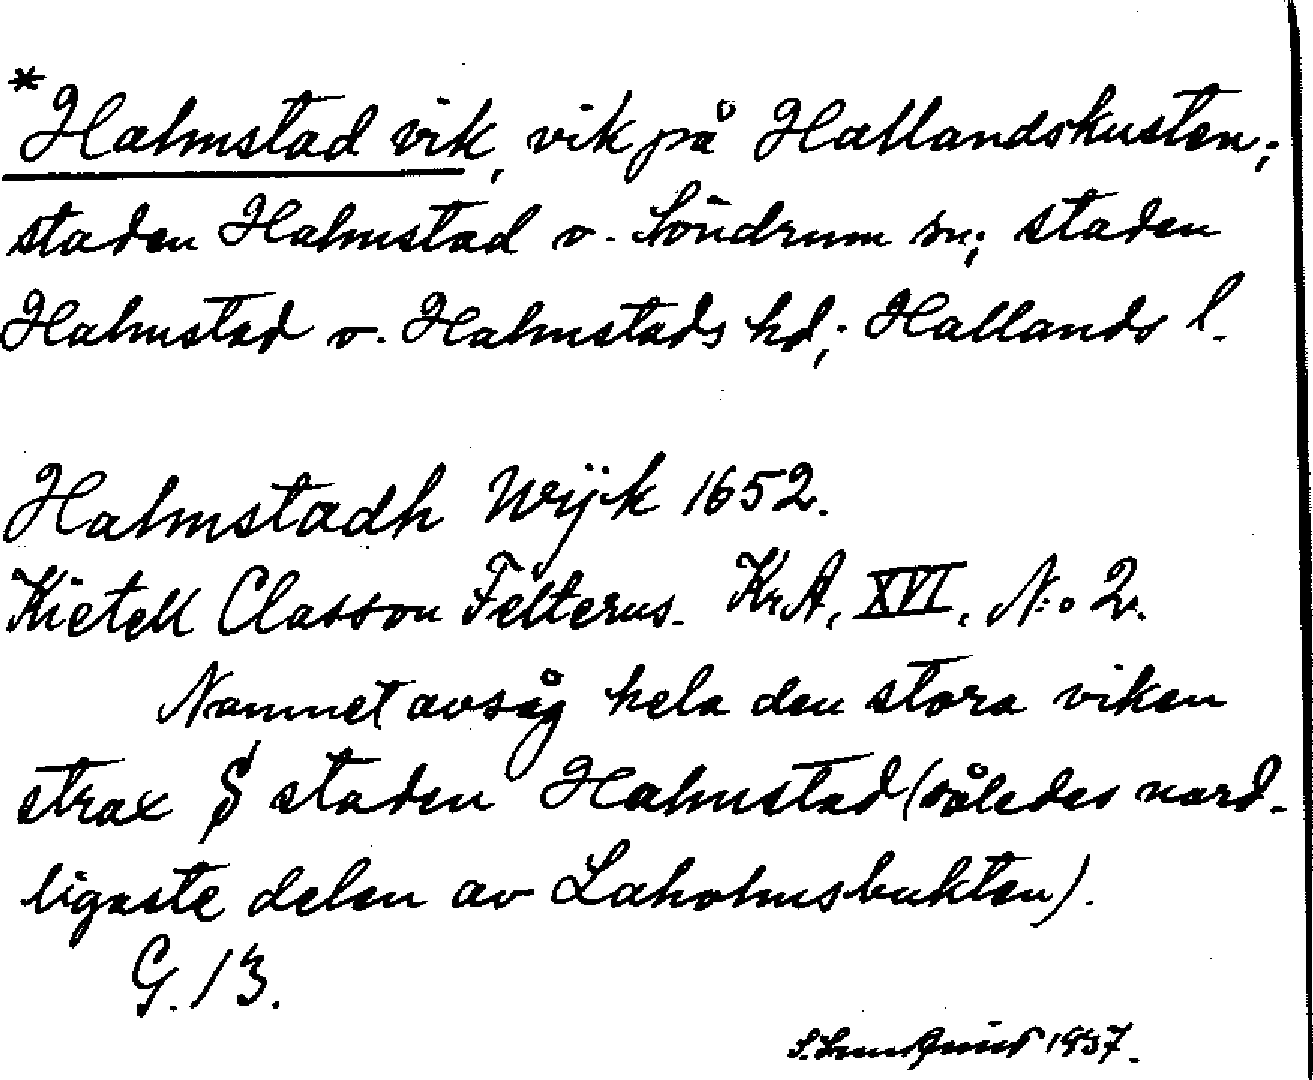 *Halmstad vik, vik på Hallandskusten;
staden Halmstad o. Söndrum sn; staden
Halmstad o. Halmstads hd; Hallands l.
Halmstadh Wijk 1652.
Kietell Classon Felterus. Kr.A. XVI. N:o 2.
Namnet avsåg hela den stora viken
strax S staden Halmstad (således nord-
ligaste delen av Laholmsbukten).
G. 13.
S. Lundquist 1937.